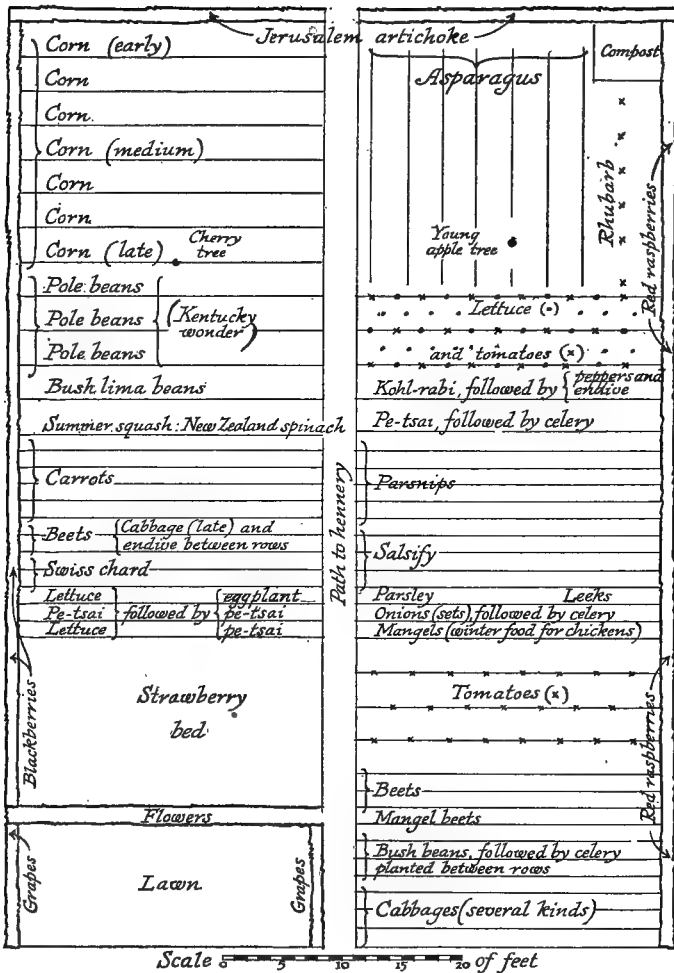 Jerusalem artichoke
Corn (early)
Corn
Corn
Corn (medium)
Corn
Corn
Corn (late)
Cherry
tree
Pole beans
Pole beans
Pole beans
(Kentucky
wonder)
Bush lima beans
Summer squash: New Zealand spinach
Carrots
Beets
Cabbage (late) and
endive between rows
Swiss chard
Lettuce
Pe-tsai
Lettuce
followed by
eggplant
pe-tsai
pe-tsai
Strawberry
bed
Blackberries
Flowers
Grapes
Lawn
Grapes
Path to hennery
Asparagus
Compost
Rhubarb
Red raspberries
Young
apple tree
Lettuce (•)
and tomatoes (x)
Kohl-rabi, followed by
peppers and
endive
Pe-tsai, followed by celery
Parsnips
Salsify
Parsley Leeks
Onions (sets), followed by celery
Mangels (winter food for chickens)
Tomatoes (x)
Red raspberries
Beets
Mangel beets
Bush beans, followed by celery
planted between rows
Cabbages (several kinds)
Scale 0 5 10 15 20 of feet